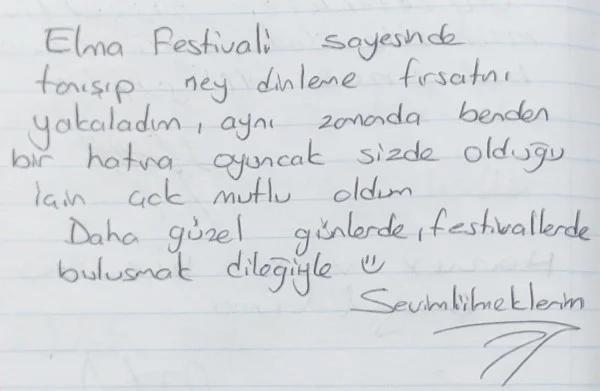 Elma Festivali sayesinde
tanışıp ney dinleme fırsatını
yakaladım, aynı zamanda benden
bir hatıra oyuncak sizde olduğu
için çok mutlu oldum
Daha güzel günlerde, festivallerde
bulusmak dileğiyle ☺
Sevimlilmeklerim